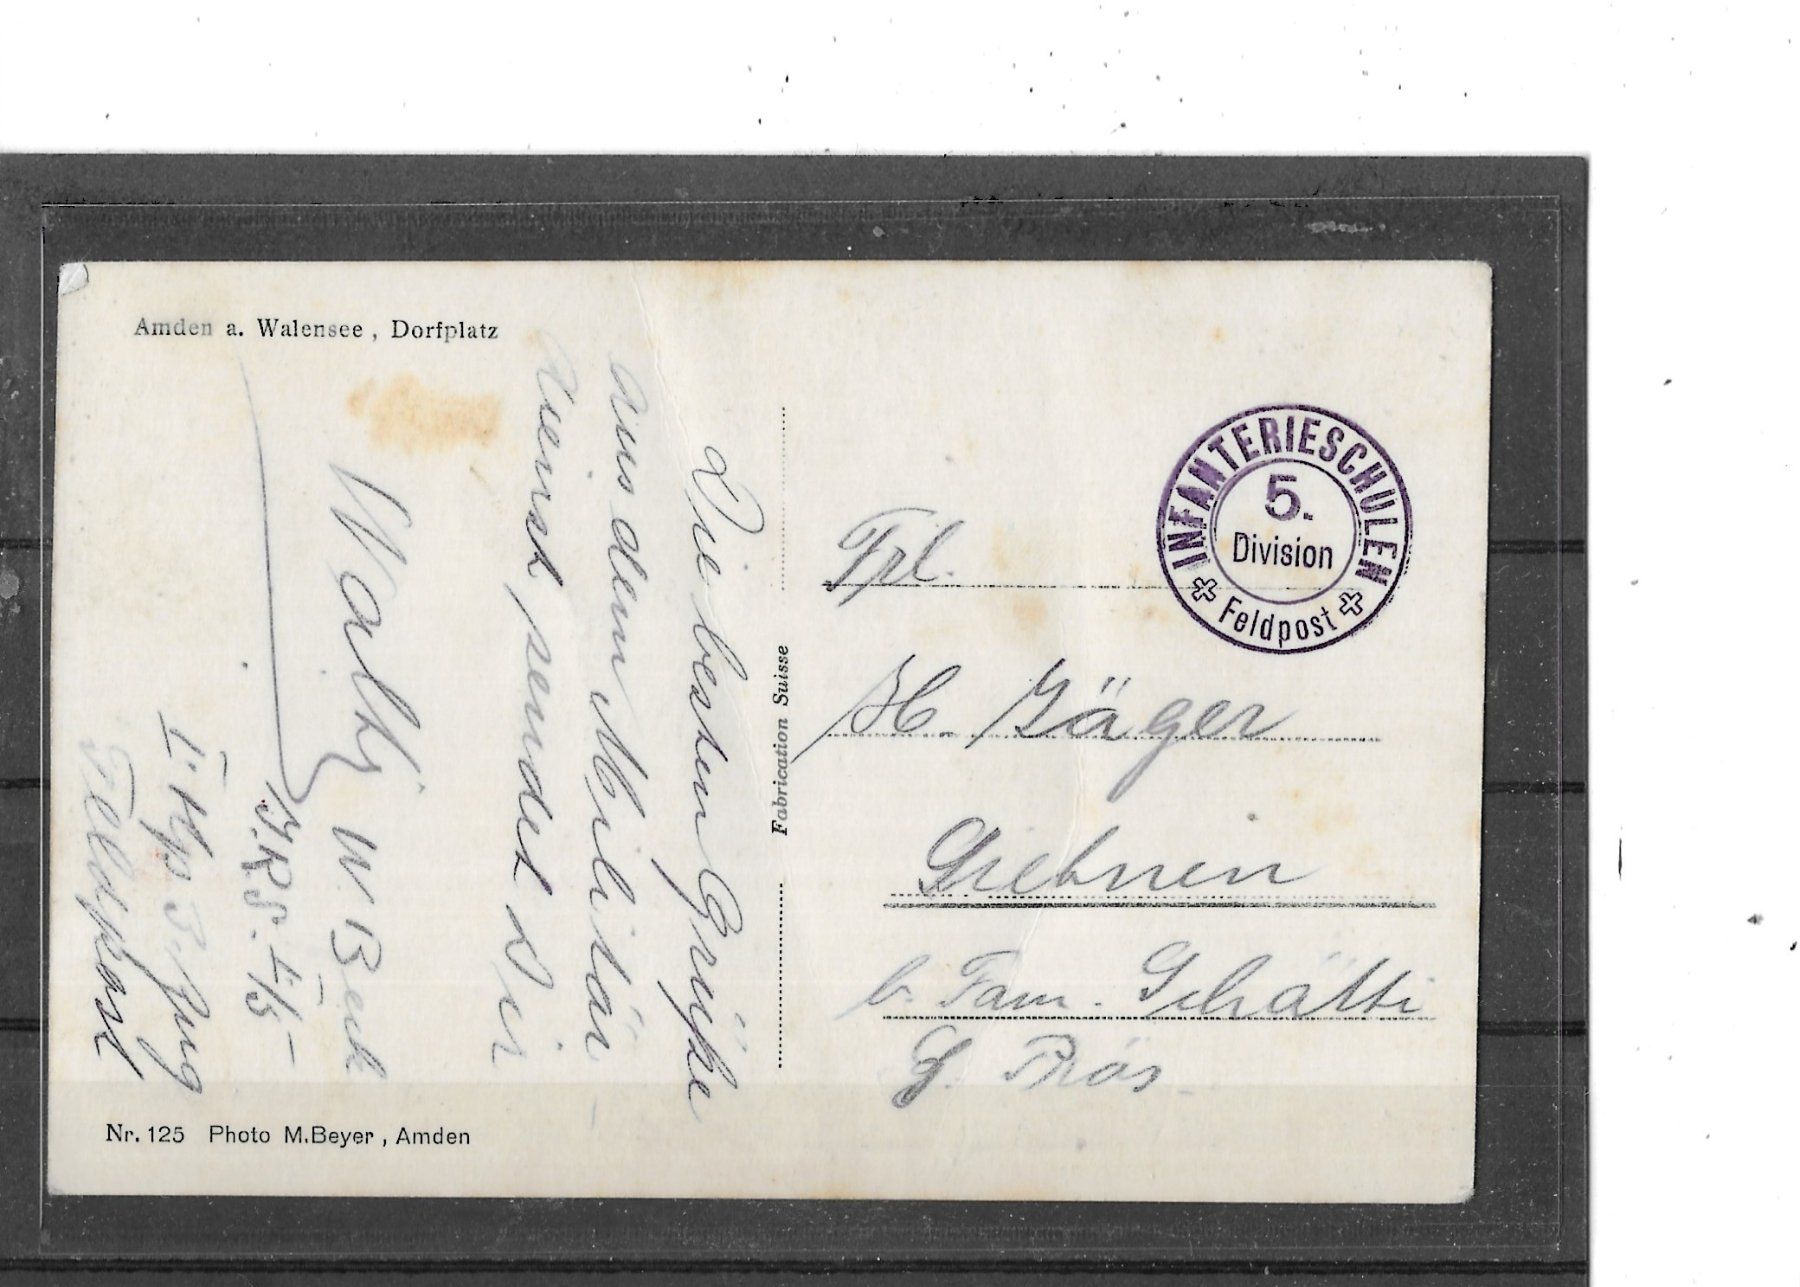 Amden a. Walensee, Dorfplatz
Die besten Grüsse
aus dem Militär
dienst sendet Dir
Walti W Beck
I.R.S. I/5
II. Kp 3. Zug
Feldpost
Nr. 125 Photo M.Beyer, Amden
Fabrication Suisse
INFANTERIESCHULEN
5.
Division
Feldpost
Frl.
H. Jäger
Siebnen
b. Fam. Schätti